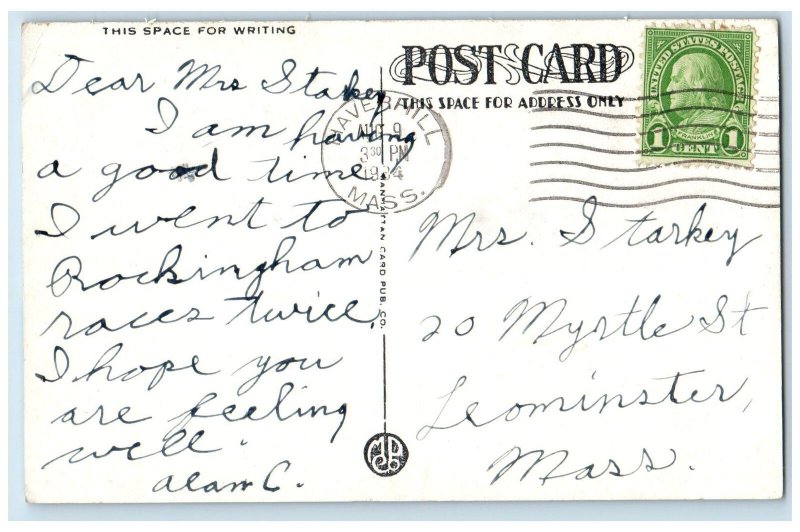 THIS SPACE FOR WRITING
Dear Mrs Starkey
I am having
a good time,
I went to
Rockingham
races twice,
I hope you
are feeling
well.
Alan C.
MANHATTAN CARD PUB. CO.
POST CARD
THIS SPACE FOR ADDRESS ONLY
HAVERHILL
AUG 9
3 30 PM
1934
MASS.
UNITED STATES POSTAGE
FRANKLIN
1 CENT 1
Mrs. Starkey
20 Myrtle St
Leominster,
Mass.